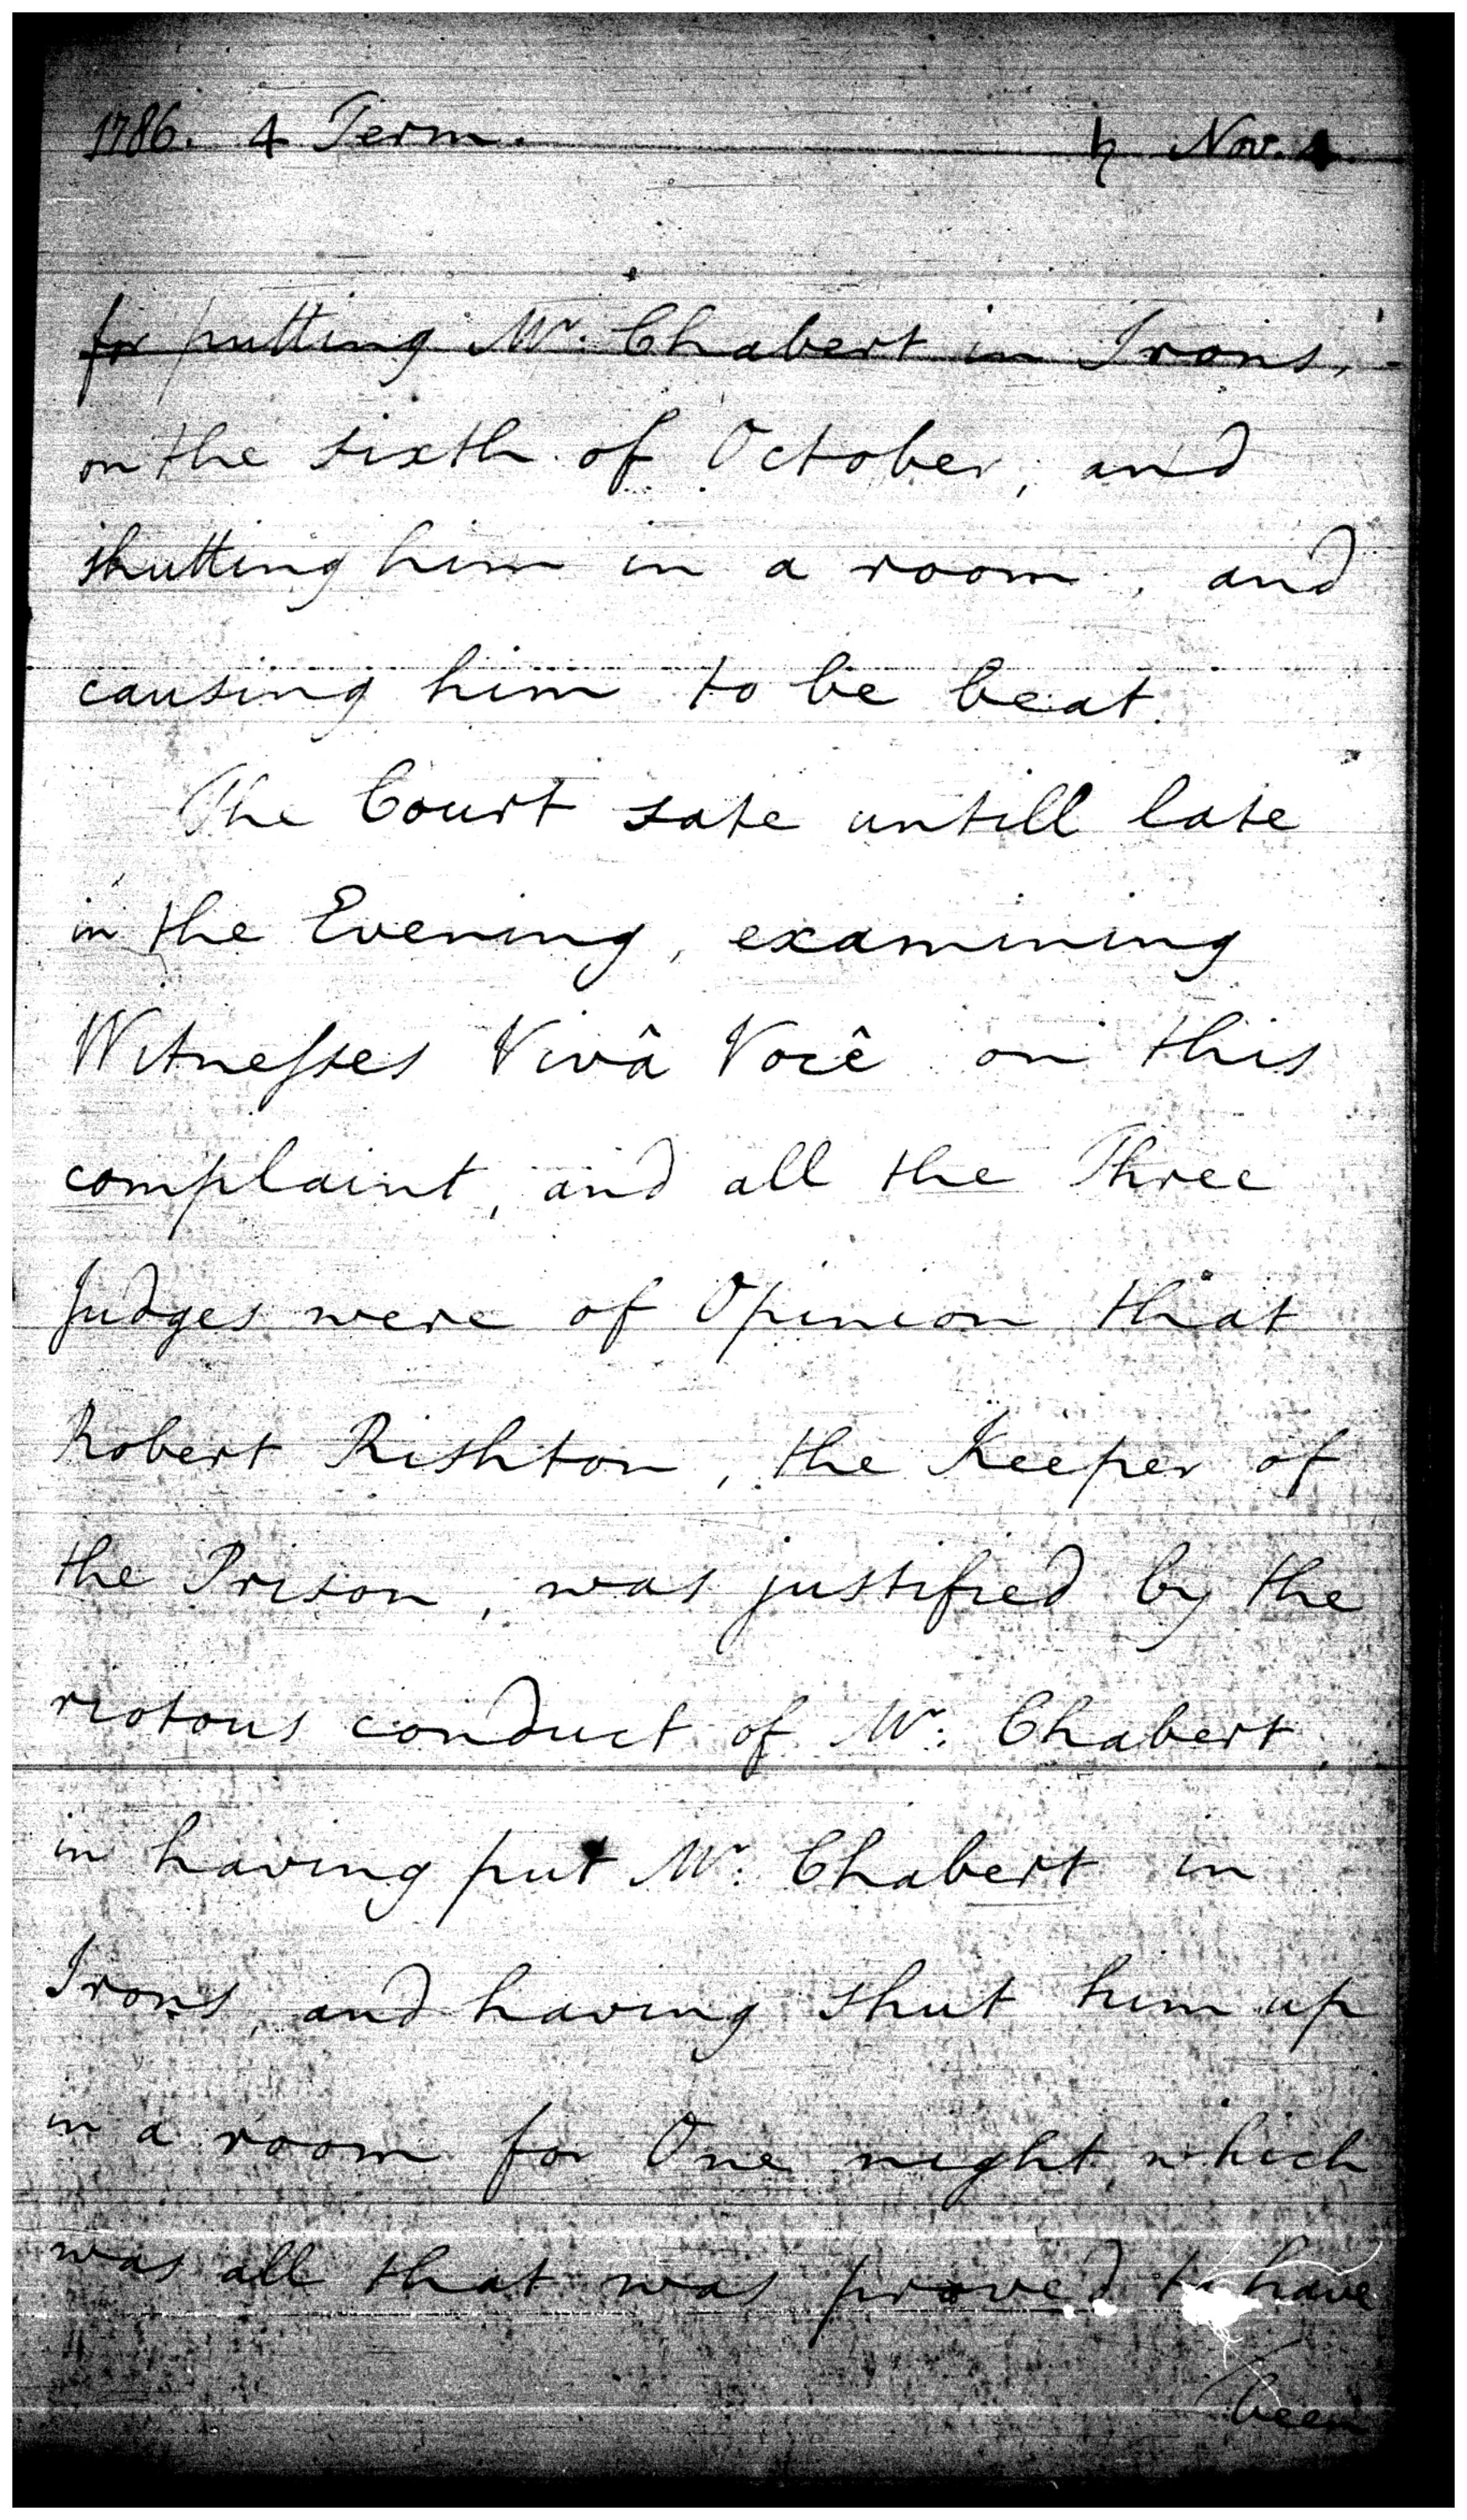 1786. 4 Term. ♄ Nov. 4.
for putting Mr. Chabert in Irons,
on the sixth of October, and
shutting him in a room, and
causing him to be beat.
The Court sate untill late
in the Evening, examining
Witneſses Vivâ Você on this
complaint, and all the Three
Judges were of Opinion that
Robert Rishton, the Keeper of
the Prison, was justified by the
riotous conduct of Mr. Chabert,
in having put Mr. Chabert in
Irons, and having shut him up
in a room for One night, which
was all that was proved to have
been